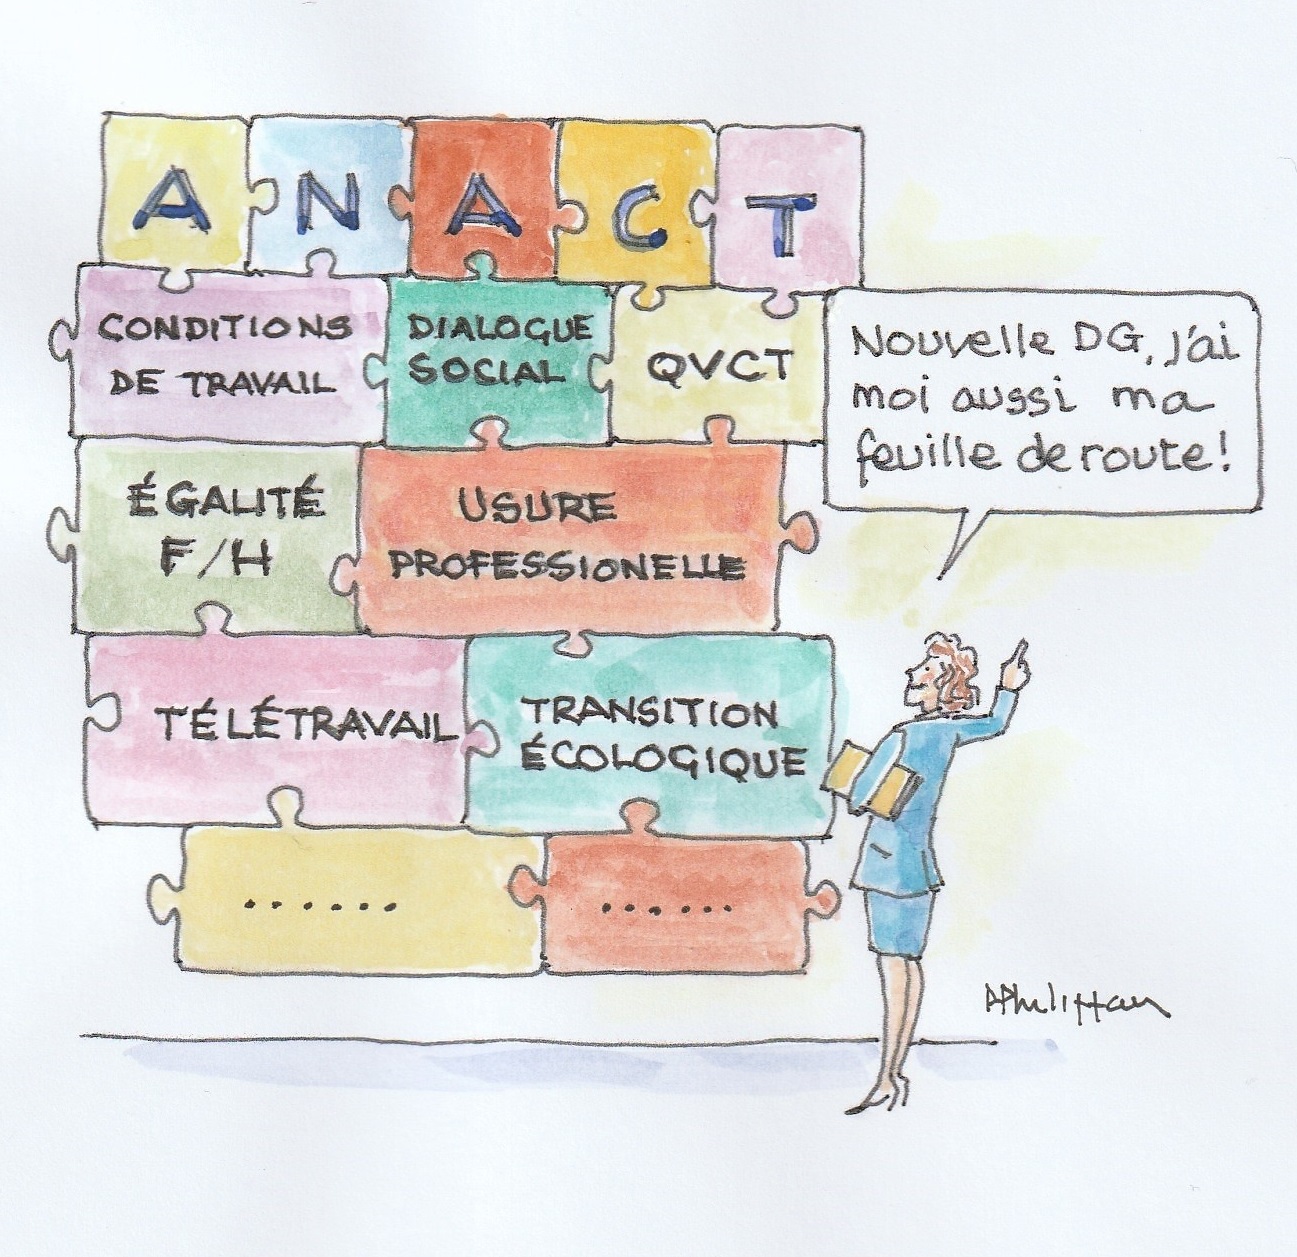 ANACT
CONDITIONS
DE TRAVAIL
DIALOGUE
SOCIAL
QVCT
Nouvelle DG, j'ai
moi aussi ma
feuille de route!
ÉGALITÉ
F/H
USURE
PROFESSIONELLE
TÉLÉTRAVAIL
TRANSITION
ÉCOLOGIQUE
......
......